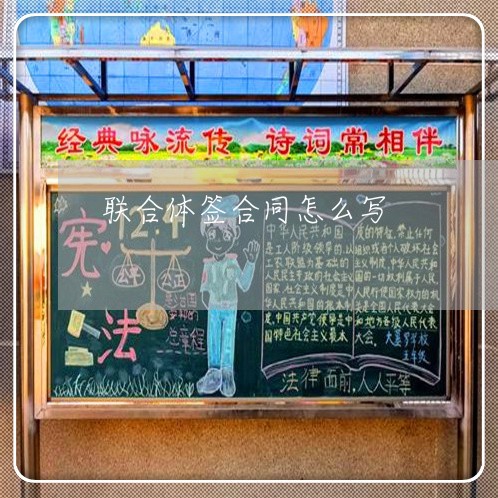 经典咏流传 诗词常相伴
联合体签合同怎么写
12.4
宪
法
公平
公正
总章程
中华人民共和国
是工人阶级领导的,以
工农联盟为基础的
人民民主专政的社会主义
国家,社会主义制度是中
华人民共和国的根本制
度,中国共产党领导是中
国特色社会主义最本
质的特征,禁止任何
组织或者个人破坏社会
主义制度,中华人民共和
国的一切权利属于人民,
人民行使国家权力的机
关是全国人民代表大会
和地方各级人民代表
大会。
学校
五年级
法律面前,人人平等